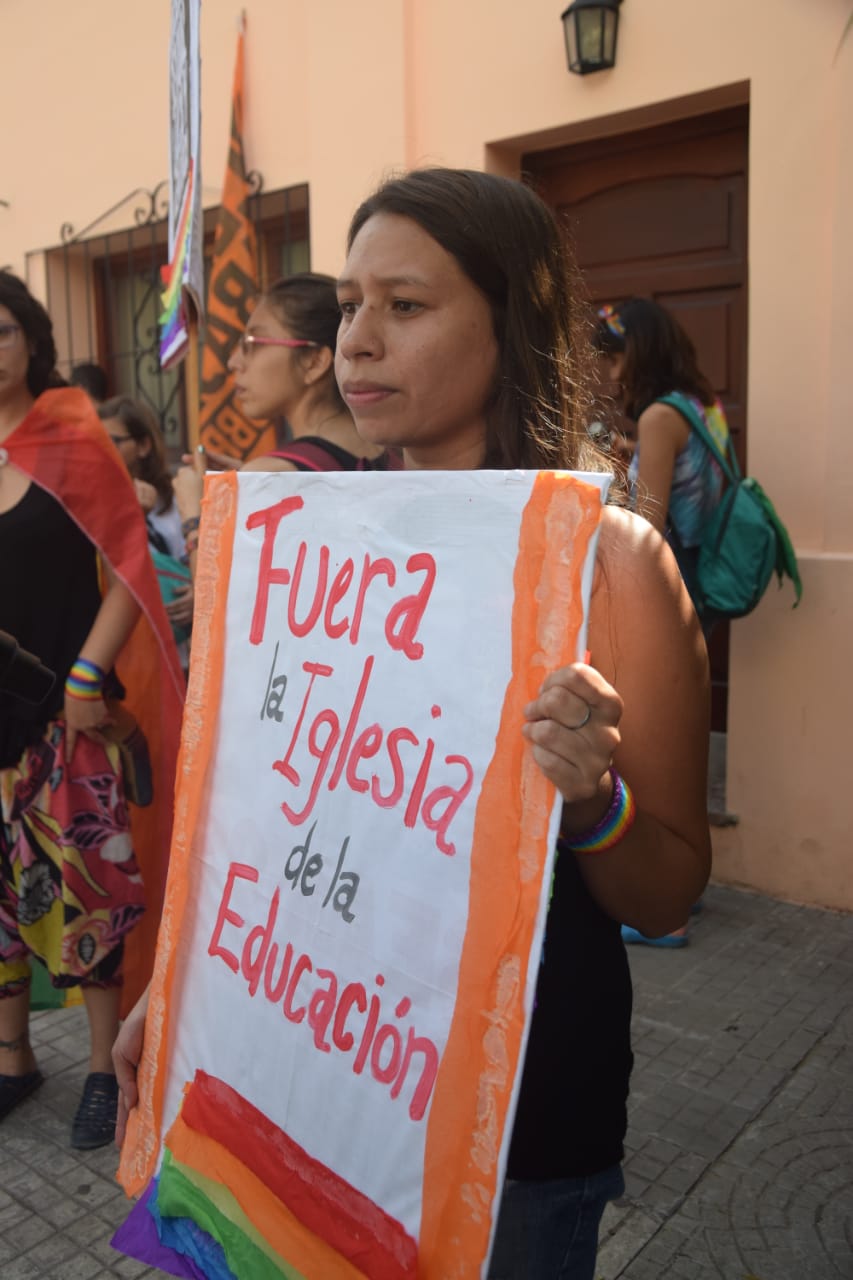 Fuera
la Iglesia
de la
Educación